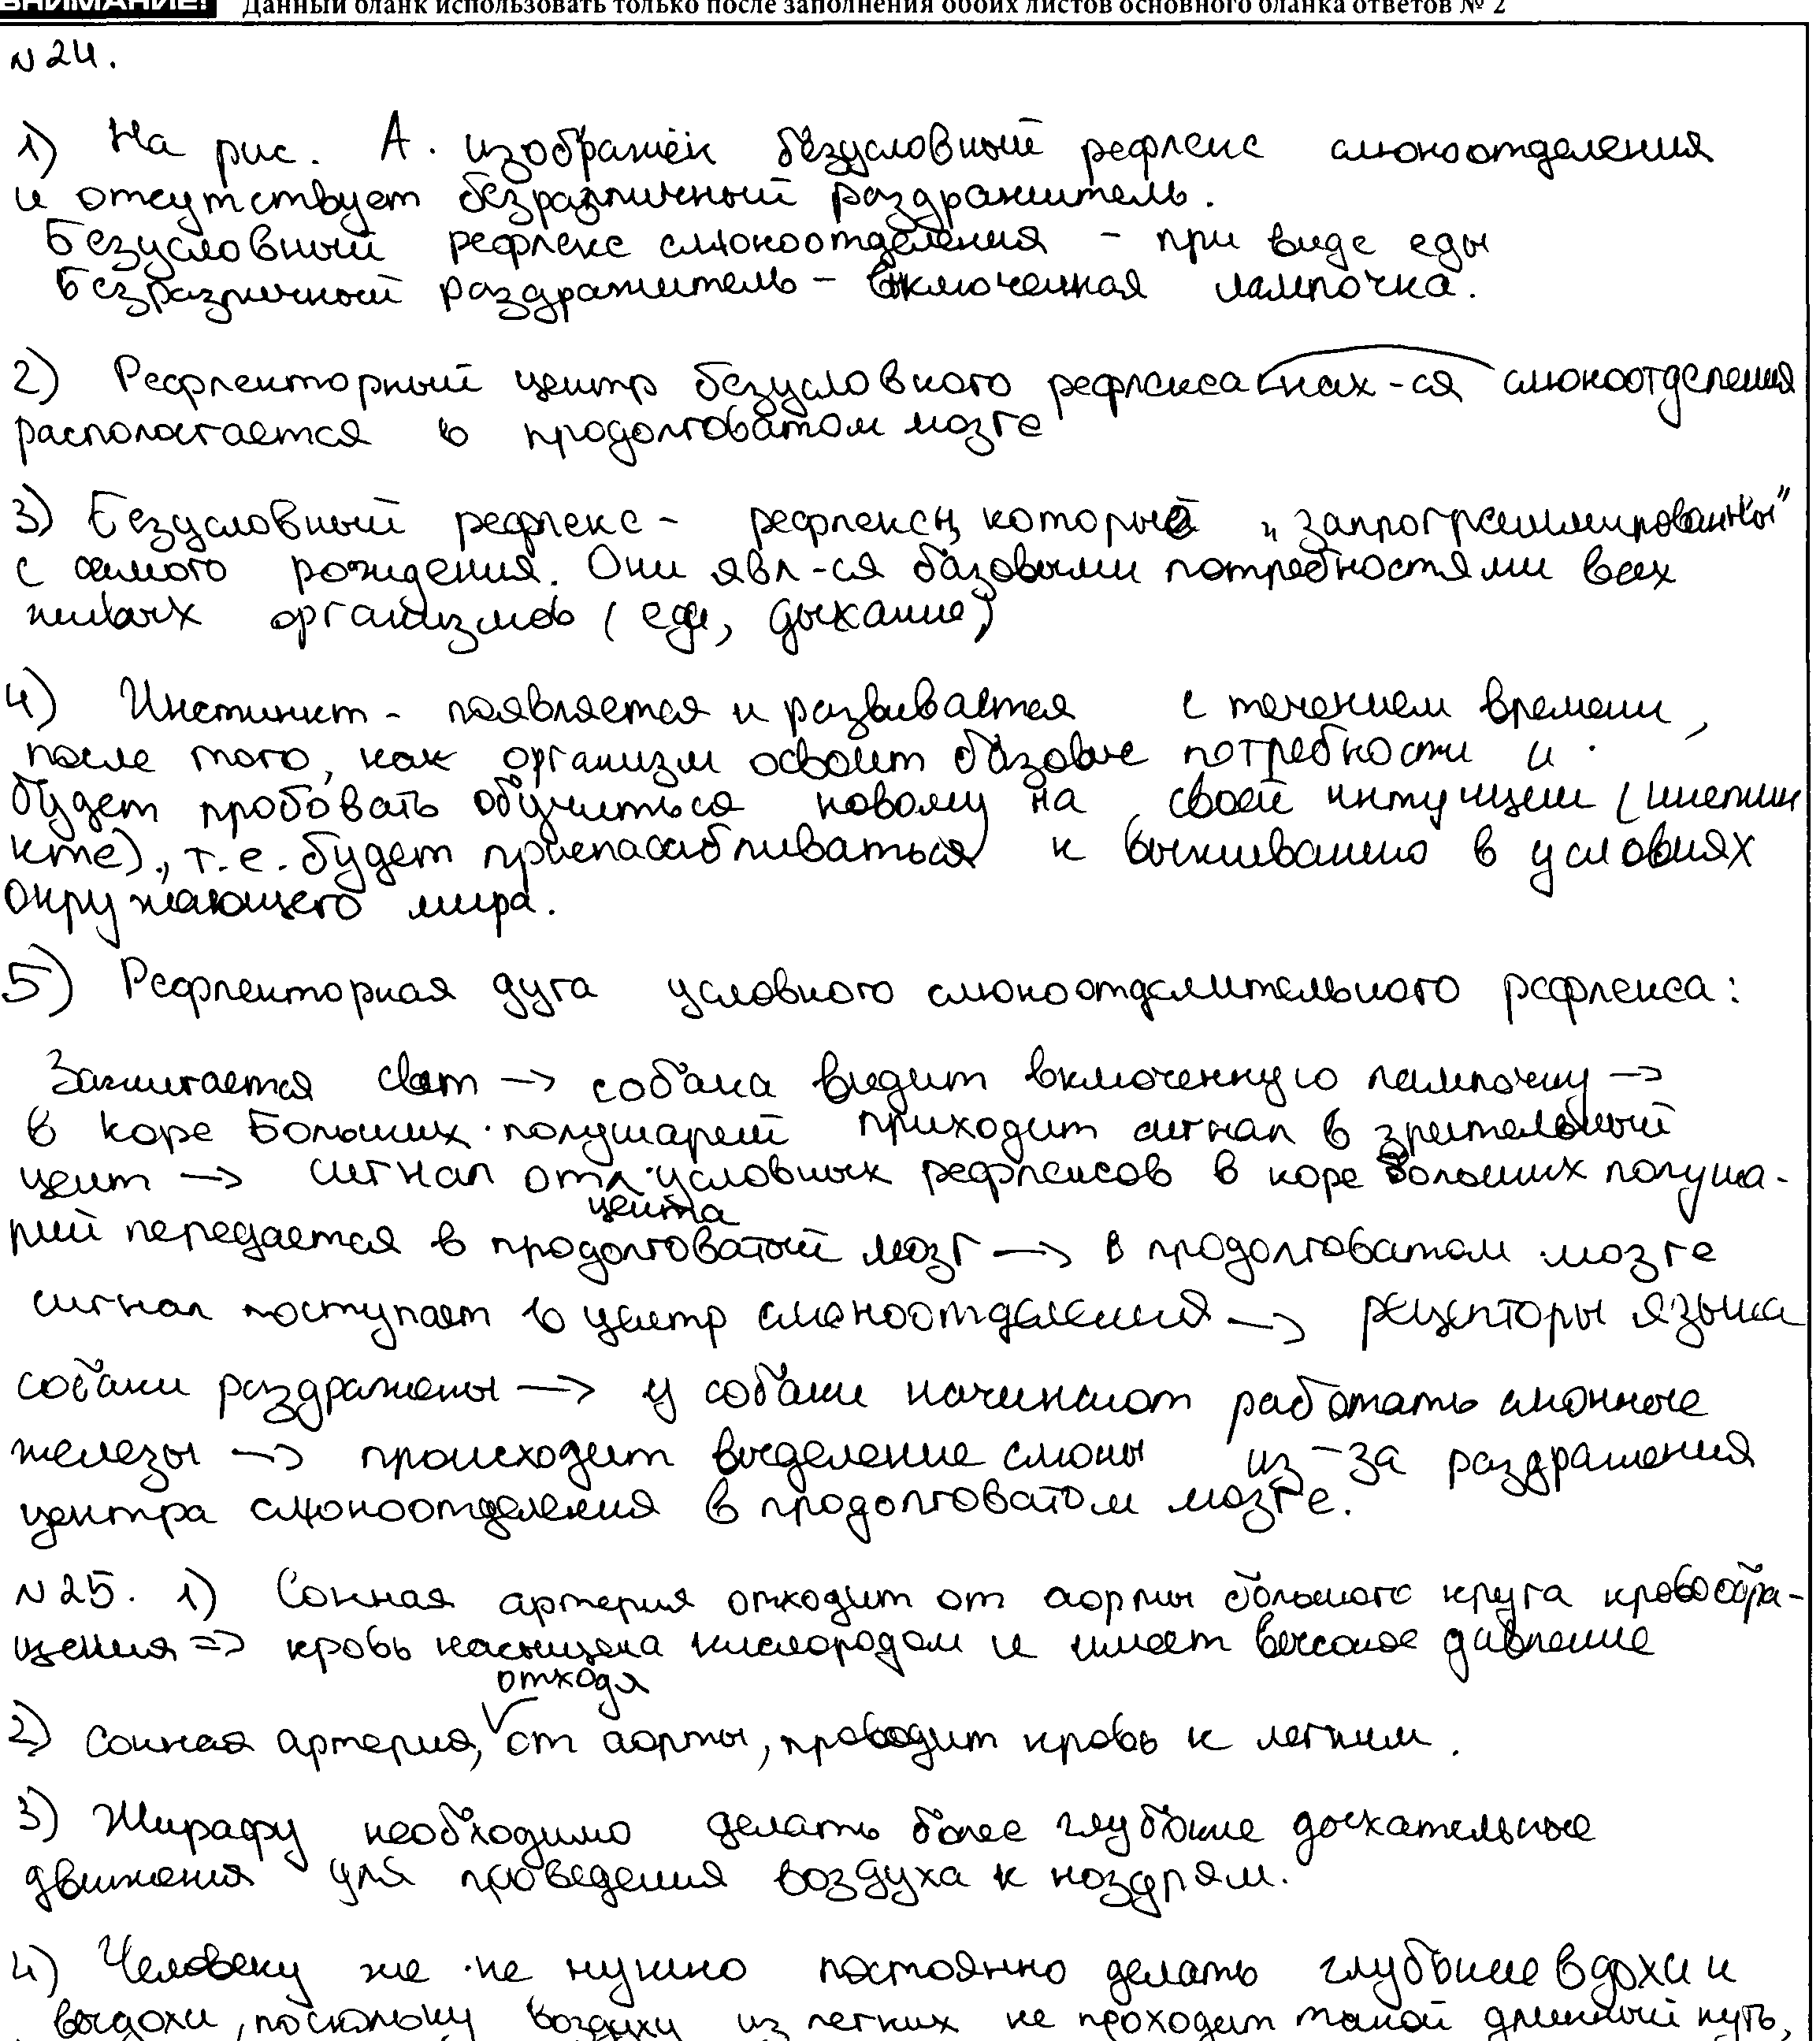 ВНИМАНИЕ! Данный бланк использовать только после заполнения обоих листов основного бланка ответов № 2
N 24.
1) На рис. А. изображён безусловный рефлекс слюноотделения
и отсутствует безразличный раздражитель.
Безусловный рефлекс слюноотделения - при виде еды
Безразличный раздражитель - включенная лампочка.
2) Рефлекторный центр безусловного рефлекса нах-ся слюноотделения
распологается в продолговатом мозге
3) Безусловный рефлекс - рефлексы, которые "запрограммированны"
с самого рождения. Они явл-ся базовыми потребностями всех
живых организмов (еда, дыхание)
4) Инстинкт - появляется и развивается с течением времени,
после того, как организм освоит базовые потребности и
будет пробовать обучиться новому на своей интуиции (инстин
кте)., т.е. будет приспосабливаться к выживанию в условиях
окружающего мира.
5) Рефлекторная дуга условного слюноотделительного рефлекса:
Зажигается свет -> собака видит включенную лампочку ->
в коре Больших полушарий приходит сигнал в зрительный
центр -> сигнал от центра условных рефлексов в коре больших полуша-
рий передается в продолговатый мозг -> в продолговатом мозге
сигнал поступает в центр слюноотделения -> рецепторы языка
собаки раздражены -> у собаки начинают работать слюнные
железы -> происходит выделение слюны из-за раздражения
центра слюноотделения в продолговатом мозге.
N 25. 1) Сонная артерия отходит от аорты большого круга кровообра-
щения => кровь насыщена кислородом и имеет высокое давление
2) Сонная артерия, отходя от аорты, проводит кровь к легким.
3) Жирафу необходимо делать более глубокие дыхательные
движения для проведения воздуха к ноздрям.
4) Человеку же не нужно постоянно делать глубокие вдохи и
выдохи, поскольку воздуху из легких не проходит такой длинный путь,